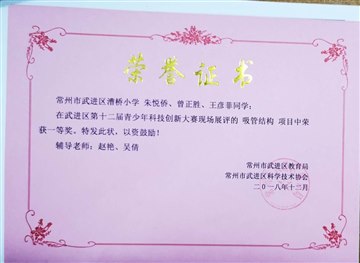 荣誉证书
常州市武进区漕桥小学 朱悦侨、曾正胜、王彦菲同学：
在武进区第十二届青少年科技创新大赛现场展评的 吸管结构 项目中荣
获一等奖。特发此状，以资鼓励！
辅导老师：赵艳、吴倩
常州市武进区教育局
常州市武进区科学技术协会
二〇一八年十二月